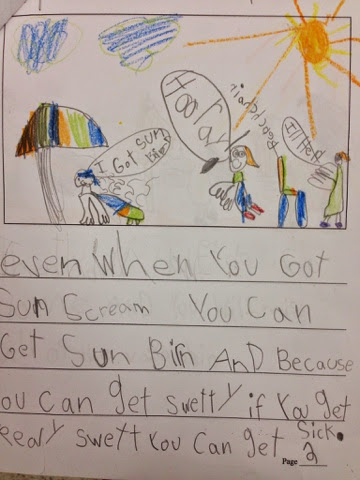 I Got Sun Birn
I'll Help
even When You Got
Sun Scream You Can
Get Sun Birn AnD Because
ou can get swetty if You get
Realy swett You Can get Sick.
Page 2